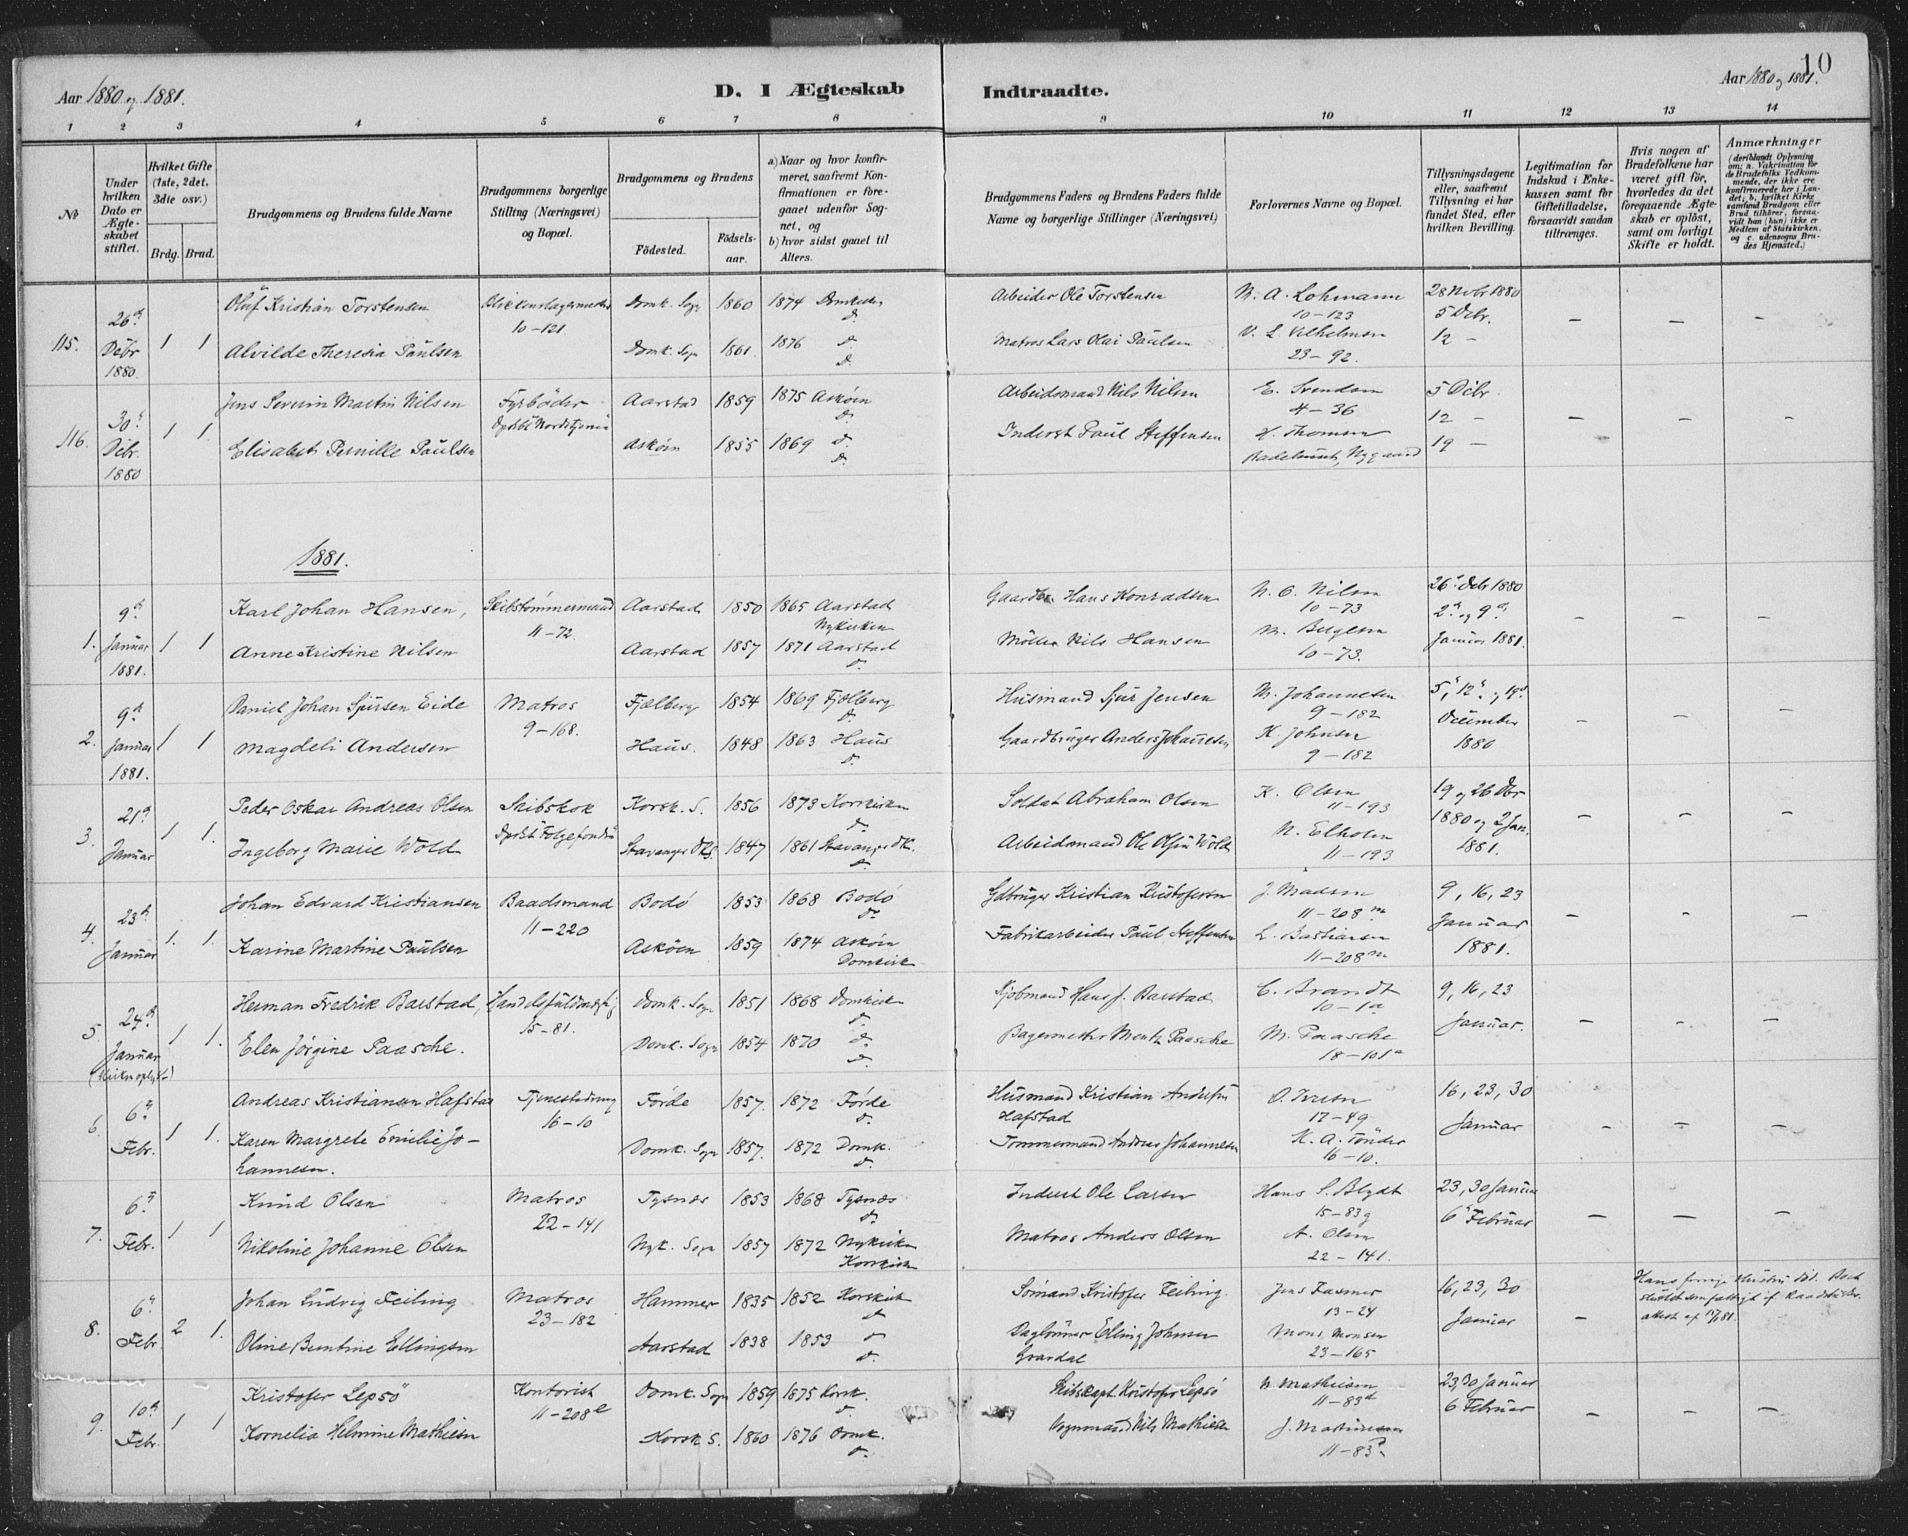 Aar 1880 og 1881.
D. I Ægteskab
Indtraadte.
Aar 1880 og 1881.
10
1 2 3 4 5 6 7 8 9 10 11 12 13 14
No
Under hvilken Dato er Ægteskabet stiftet.
Hvilket Gifte (1ste, 2det, 3die osv.)
Brdg. Brud.
Brudgommens og Brudens fulde Navne
Brudgommens borgerlige Stilling (Næringsvei) og Bopæl.
Brudgommens og Brudens
Fødested.
Fødselsaar.
a) Naar og hvor konfirmeret, saafremt Konfirmationen er foregaaet udenfor Sognet, og
b) hvor sidst gaaet til Alters.
Brudgommens Faders og Brudens Faders fulde Navne og borgerlige Stillinger (Næringsvei)
Forlovernes Navne og Bopæl.
Tillysningsdagene eller, saafremt Tillysning ei har fundet Sted, efter hvilken Bevilling.
Legitimation for Indskud i Enkekassen samt for Giftetilladelse, forsaavidt saadan tiltrænges.
Hvis nogen af Brudefolkene har været gift før, hvorledes da det foregaaende Ægteskab er opløst, samt om lovligt Skifte er holdt.
Anmærkninger
(deriblandt Oplysning om: a. Vakcination for de Brudefolks Vedkommende, der ikke ere konfirmerede her i Landet; b. hvilket Kirkesamfund Brudgom eller Brud tilhører, forsaavidt han (hun) ikke er Medlem af Statskirken, og c. udensogns Brudes Hjemsted.)
115. 26d Debr 1880. 1 1 Oluf Kristian Torstensen Blikkenslagermester 10-121 Domk. Sogn 1860 1874 Domkirken do Arbeider Ole Torstensen N. A. Lohmann 10-123 28 Nvbr 1880 5 Debr. - - -
Alvilde Theresia Paulsen Domk. Sogn 1861. 1876 do do Matros Lars Olai Paulsen V. L. Vilhelmsen 23-92. 12 -
116. 30d Debr. 1880 1 1. Jens Severin Martin Nilsen Fyrbøder Dpsk. Nordstjernen Aarstad 1859 1875 Askøen do Arbeidsmand Nils Nilsen E. Svendsen 4-36 5 Debr. 12 - - - -
Elisabet Pernille Paulsen Askøen 1855 1869 do do Inderst Paul Steffensen H. Thomsen Nygaard 19 -
1881.
1. 9d Januar 1881. 1 1 Karl Johan Hansen, Skibstømmermand 11-72. Aarstad 1850 1865 Aarstad Nykirken Gaardbr Hans Konradsen N. O. Nilsen 10-73 26d Debr 1880 2d og 9d - - -
Anne Kristine Nilsen Aarstad 1857 1871 Aarstad do Møller Nils Hansen 10-73. Januar 1881.
2. 9d Januar 1881. 1 1 Daniel Johan Sjursen Eide Matros 9-168. Fjælberg 1854 1869 Fjelberg do Husmand Sjur Jensen M. Johannesen 9-182 5d, 12d og 19d - - -
Magdeli Andersen Haus. 1848 1863 Haus do Gaardbruger Anders Johannesen K. Johnsen 9-182 December 1880
3. 21d Januar 1 1. Peder Oskar Andreas Olsen Skibskok Dpsk. Folgefonden Korsk. S. 1856 1873 Korskirken do Soldat Abraham Olsen K. Olsen 11-193 19 og 26 Dbr - - -
Ingeborg Marie Wold Stavanger Dks. 1847 1861 Stavanger Dk. do Arbeidsmand Ole Olsen Wold N. Elholm 11-193 1880 og 2 Jan. 1881.
4. 23d Januar 1. 1. Johan Edvard Kristiansen Baadsmand 11-220 Bodø 1853 1868 Bodø do Gdbruger Kristian Kristofersen J. Madsen 11-208m 9, 16, 23 - - -
Karine Martine Paulsen Askøen 1859 1874 Askøen Domkirk Fabrikarbeider Paul Steffensen L. Bastiansen 11-208m Januar 1881.
5 24d Januar 1 1. Herman Fredrik Barstad, Handelsfuldmægtig 15-81. Domk. Sogn 1851 1868 Domkirken do Kjøbmand Hans J. Barstad C. Brandt 10-1a 9, 16, 23 - - -
Elen Jørgine Paasche. Domk. Sogn 1854 1870 do do Bagermester Mentz Paasche M. Paasche 18-101a Januar.
6. 6d Febr. 1 1. Andreas Kristiansen Hafstad Tjenestedreng 16-10 Førde 1857. 1872 Førde do Husmand Kristian Andersen Hafstad O. Iversen 17-49 16, 23, 30 - - -
Karen Margrete Emilie Johannesen. Domk. Sogn 1857. 1872 Domk. do Tømmermand Andreas Johannesen K. A. Tønder 16-10. Januar
7. 6d Febr. 1 1 Knud Olsen Matros 22-141 Tysnæs 1853 1868 Tysnæs do Inderst Ole Larsen Hans S. Blydt 15-83g 23, 30 Januar - - -
Nikoline Johanne Olsen Nyk. Sogn 1857 1872 Nykirken Korskirken Matros Anders Olsen A. Olsen 22-141. 6d Februar
8. 6d Febr 2 1. Johan Ludvig Feiling Matros 23-182 Hammer 1835 1852 Korskirk do Sømand Kristofer Feiling. Jens Fasmer 13-24 16, 23, 30 - Hans forrige Hustru
Oline Berntine Ellingsen Aarstad 1838 1853 do do Daglønner Elling Johnsen Mons Monsen 23-165 Januar
9. 10d Febr. 1 1 Kristofer Lepsø Kontorist 11-208e Domk. Sogn 1859 1875 Korsk. do Skibskapt. Kristofer Lepsø N Mathiesen 11-83d 23, 30 Januar - - -
Kornelia Helmine Mathiesen Korsk S. 1860 1876 Domk. do Vognmand Nils Mathiesen 11-83 6 Februar